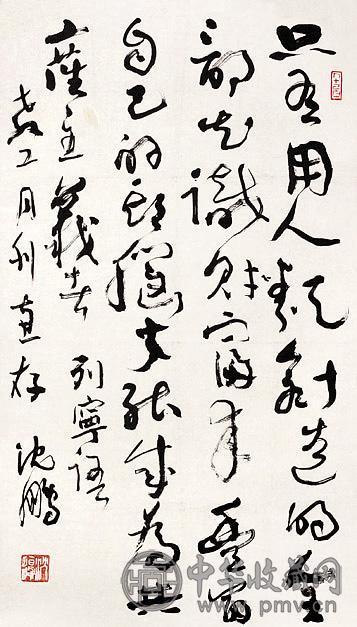 只有用人類創造的全
部知識財富來豐富
自己的頭腦才能成為共
產主義者
列寧語
教工月刊惠存 沈鵬
中华收藏网
www.pmv.cn